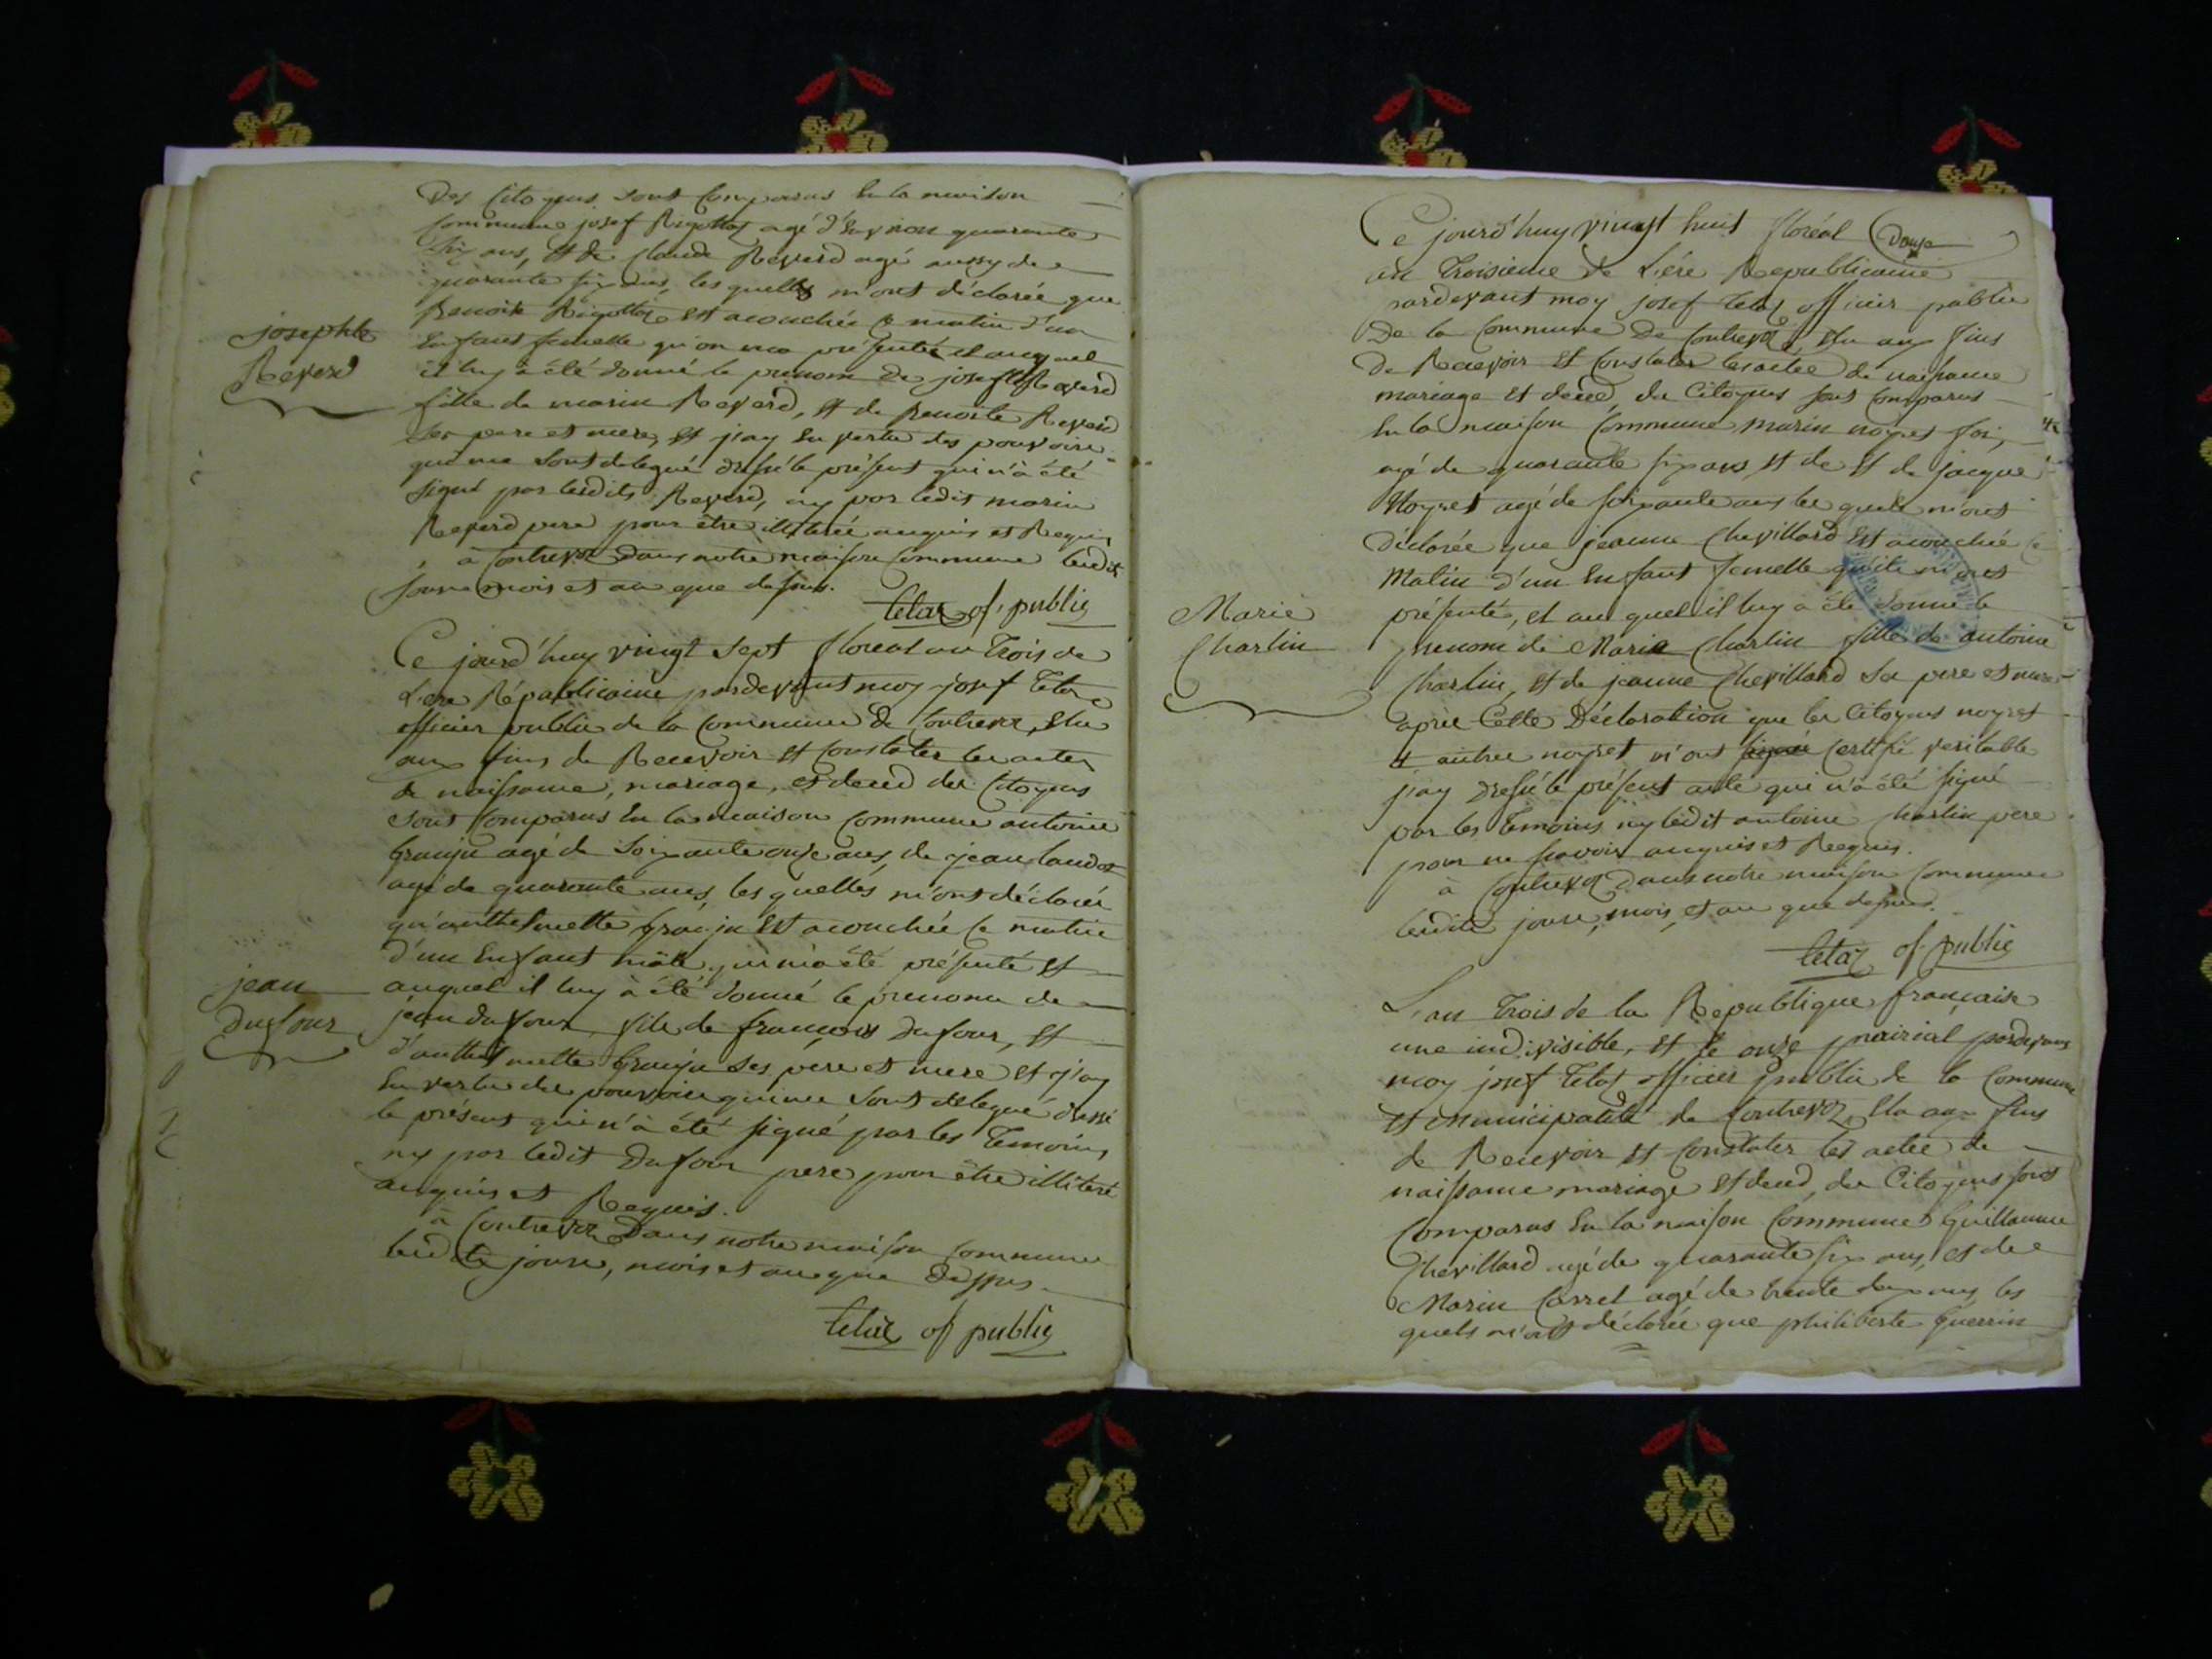 Des Citoyens sont Comparus En la maison
Commune josef Rigottaz agé d'Environ quarante
six ans, et de Claude Reverd agé aussy de
quarante six ans, les quells m'ont déclarée que
Benoite Rigottaz est acouchée ce matin d'un
Enfant femelle qu'on ma présenté et auquel
il luy à été donné le prenom de josephte Reverd
fille de marin Reverd, et de Benoite Reverd
ses pere et mere, et j'ay En vertu des pouvoirs
qui me sont delegué dressé le présent qui n'à été
signé par lesdits Reverd, ny par ledit marin
Reverd pere pour être illiterée enquis et Requis
à Contrevoz dans notre maison Commune lesdit
jours mois et an que dessus.
tetaz of. public
josephte
Reverd
Ce jourd'huy vingt sept floreal an trois de
L'ere Républicaine pardevant moy josef tetaz
officier public de la Commune de Contrevoz, Elu
aux fins de Recevoir et Constater les actes
de naissance, mariage, et deced des Citoyens
sont Comparus En la maison Commune antoine
Grinju agé de Soixante onze ans, de jean landoz
agé de quarante ans, les quelles m'ont déclaré
qu'anthelmette Grinju Est acouchée ce matin
d'un Enfant mâle qui m'à été présenté et
auquel il luy à été donné le prenom de
jean dufour, fils de françois Dufour, et
d'anthelmette Grinju ses pere et mere et j'ay
En vertu des pouvoirs qui me sont delegué dressé
le présent qui n'à été signé par les temoins
ny par ledit Dufour pere pour être illiteré
enquis et Requis.
à Contrevoz Dans notre maison Commune
lesdits jours, mois et an que Dessus.
tetaz of public
jean
Dufour
Ce jourd'huy vingt huit floréal Douze
an troisieme de L'ére Republicaine
pardevant moy josef tetaz officier public
De la Commune De Contrevoz, Elu aux fins
De Recevoir et Constater les actes de naissance
mariage et deced, des Citoyens sont Comparus
En la maison Commune marin noyret
agé de quarante six ans et de et de jacque
Noyret agé de soixante ans les quels m'ont
déclarée que jeanne Chevillard Est acouchée ce
Matin d'un Enfant femelle qu'ils m'ont
présenté, et au quel il luy a été donné le
prenom de Marie Charlin fille de antoine
Charlin, et de jeanne Chevillard Ses pere et mere
aprés Cette Déclaration que les Citoyens noyret
et autre noyret m'ont signé Certifié veritable
j'ay dressé le présent acte qui n'à été signé
par les temoins ny ledit antoine Charlin pere
pour ne sçavoir enquis et Requis.
à Contrevoz dans notre maison Commune
lesdits jours, mois, et an que dessus.
tetaz of public
Marie
Charlin
L'an trois de la Republique française
une indivisible, et le onze prairial pardevant
moy josef tetaz officier public de la Commune
et municipalité de Contrevoz, Elu aux fins
de Recevoir et Constater les actes de
naissance mariage et deced, des Citoyens sont
Comparus En la maison Commune Guillaume
Chevillard agé de quarante six ans, et de
Marin Carrel agé de trente deux ans les
quels m'ont déclarée que philiberte Guerrin